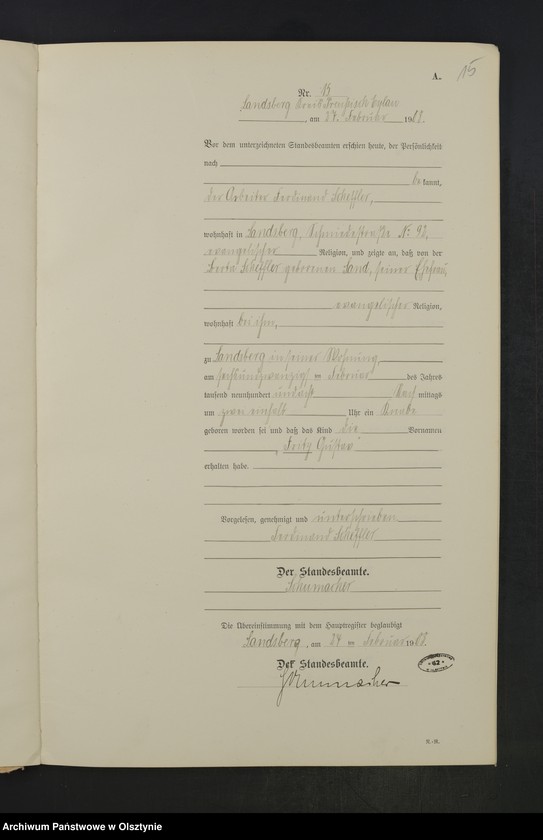 A.
15
Nr. 13
Landsberg Kreis Preußisch Eylau
, am 27. Februar 1908.
Vor dem unterzeichneten Standesbeamten erschien heute, der Persönlichkeit
nach
be kannt,
der Arbeiter Ferdinand Scheffler,
wohnhaft in Landsberg, Schmiedestraße No 92,
evangelischer Religion, und zeigte an, daß von der
Scheffler geborenen Sand, seiner Ehefrau,
evangelischer Religion,
wohnhaft bei ihm,
zu Landsberg in seiner Wohnung,
am sechsundzwanzigsten Februar des Jahres
tausend neunhundert und acht Nach mittags
um zwei einhalb Uhr ein Knabe
geboren worden sei und daß das Kind die Vornamen
Fritz Gustav
erhalten habe.
Vorgelesen, genehmigt und unterschrieben
Ferdinand Scheffler
Der Standesbeamte.
Schumacher
Die Übereinstimmung mit dem Hauptregister beglaubigt
Landsberg, am ten Februar 1908.
Der Standesbeamte.
Schumacher
62
K.-N.
Archiwum Państwowe w Olsztynie